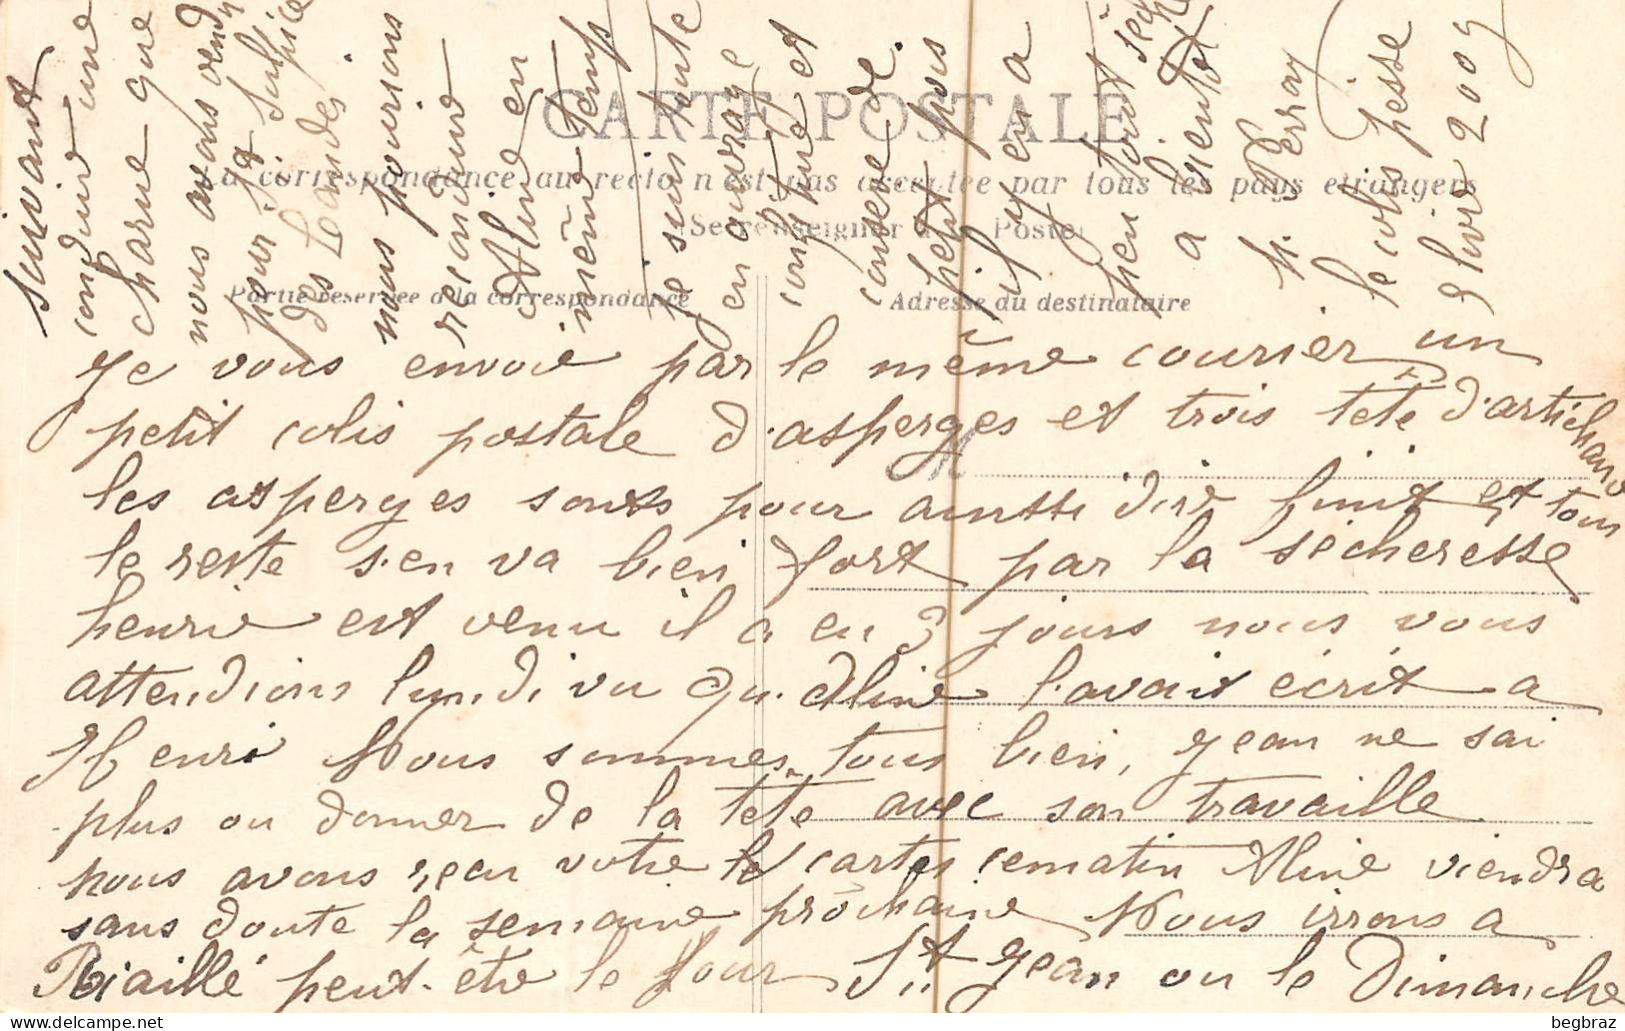 CARTE POSTALE
La correspondance au recto n'est pas acceptée par tous les pays étrangers
Se renseigner à la Poste
Partie réservée à la correspondance
Adresse du destinataire
Je vous envoie par le même courier un
petit colis postale d'asperges et trois tête d'artichaud
les asperges sonts pour ainssi dire finit et tous
le reste s'en va bien fort par la sécheresse
henrie est venu il a eu 3 jours nous vous
attendions lundi vu qu'Aline l'avait écrit a
Henri Nous sommes tous bien, Jean ne sai
plus ou donner de la tête avec son travaille
nous avons reçu votre cartes cematin Aline viendra
sans doute la semaine prochaine Nous irrons a
Riaillé peut-être le Jour St Jean ou le Dimanche
suivant
conduire une
charue que
nous avons vend
pour St Sulpice
des Landes
nous pourions
recondui
Aline en
même temps
je suis toute
en ouvrage
confiture et
conserve de
petit pois
il y en a
peu tout seche
a bientot
H Perray
le colis pesse
9 livre 200g
begbraz